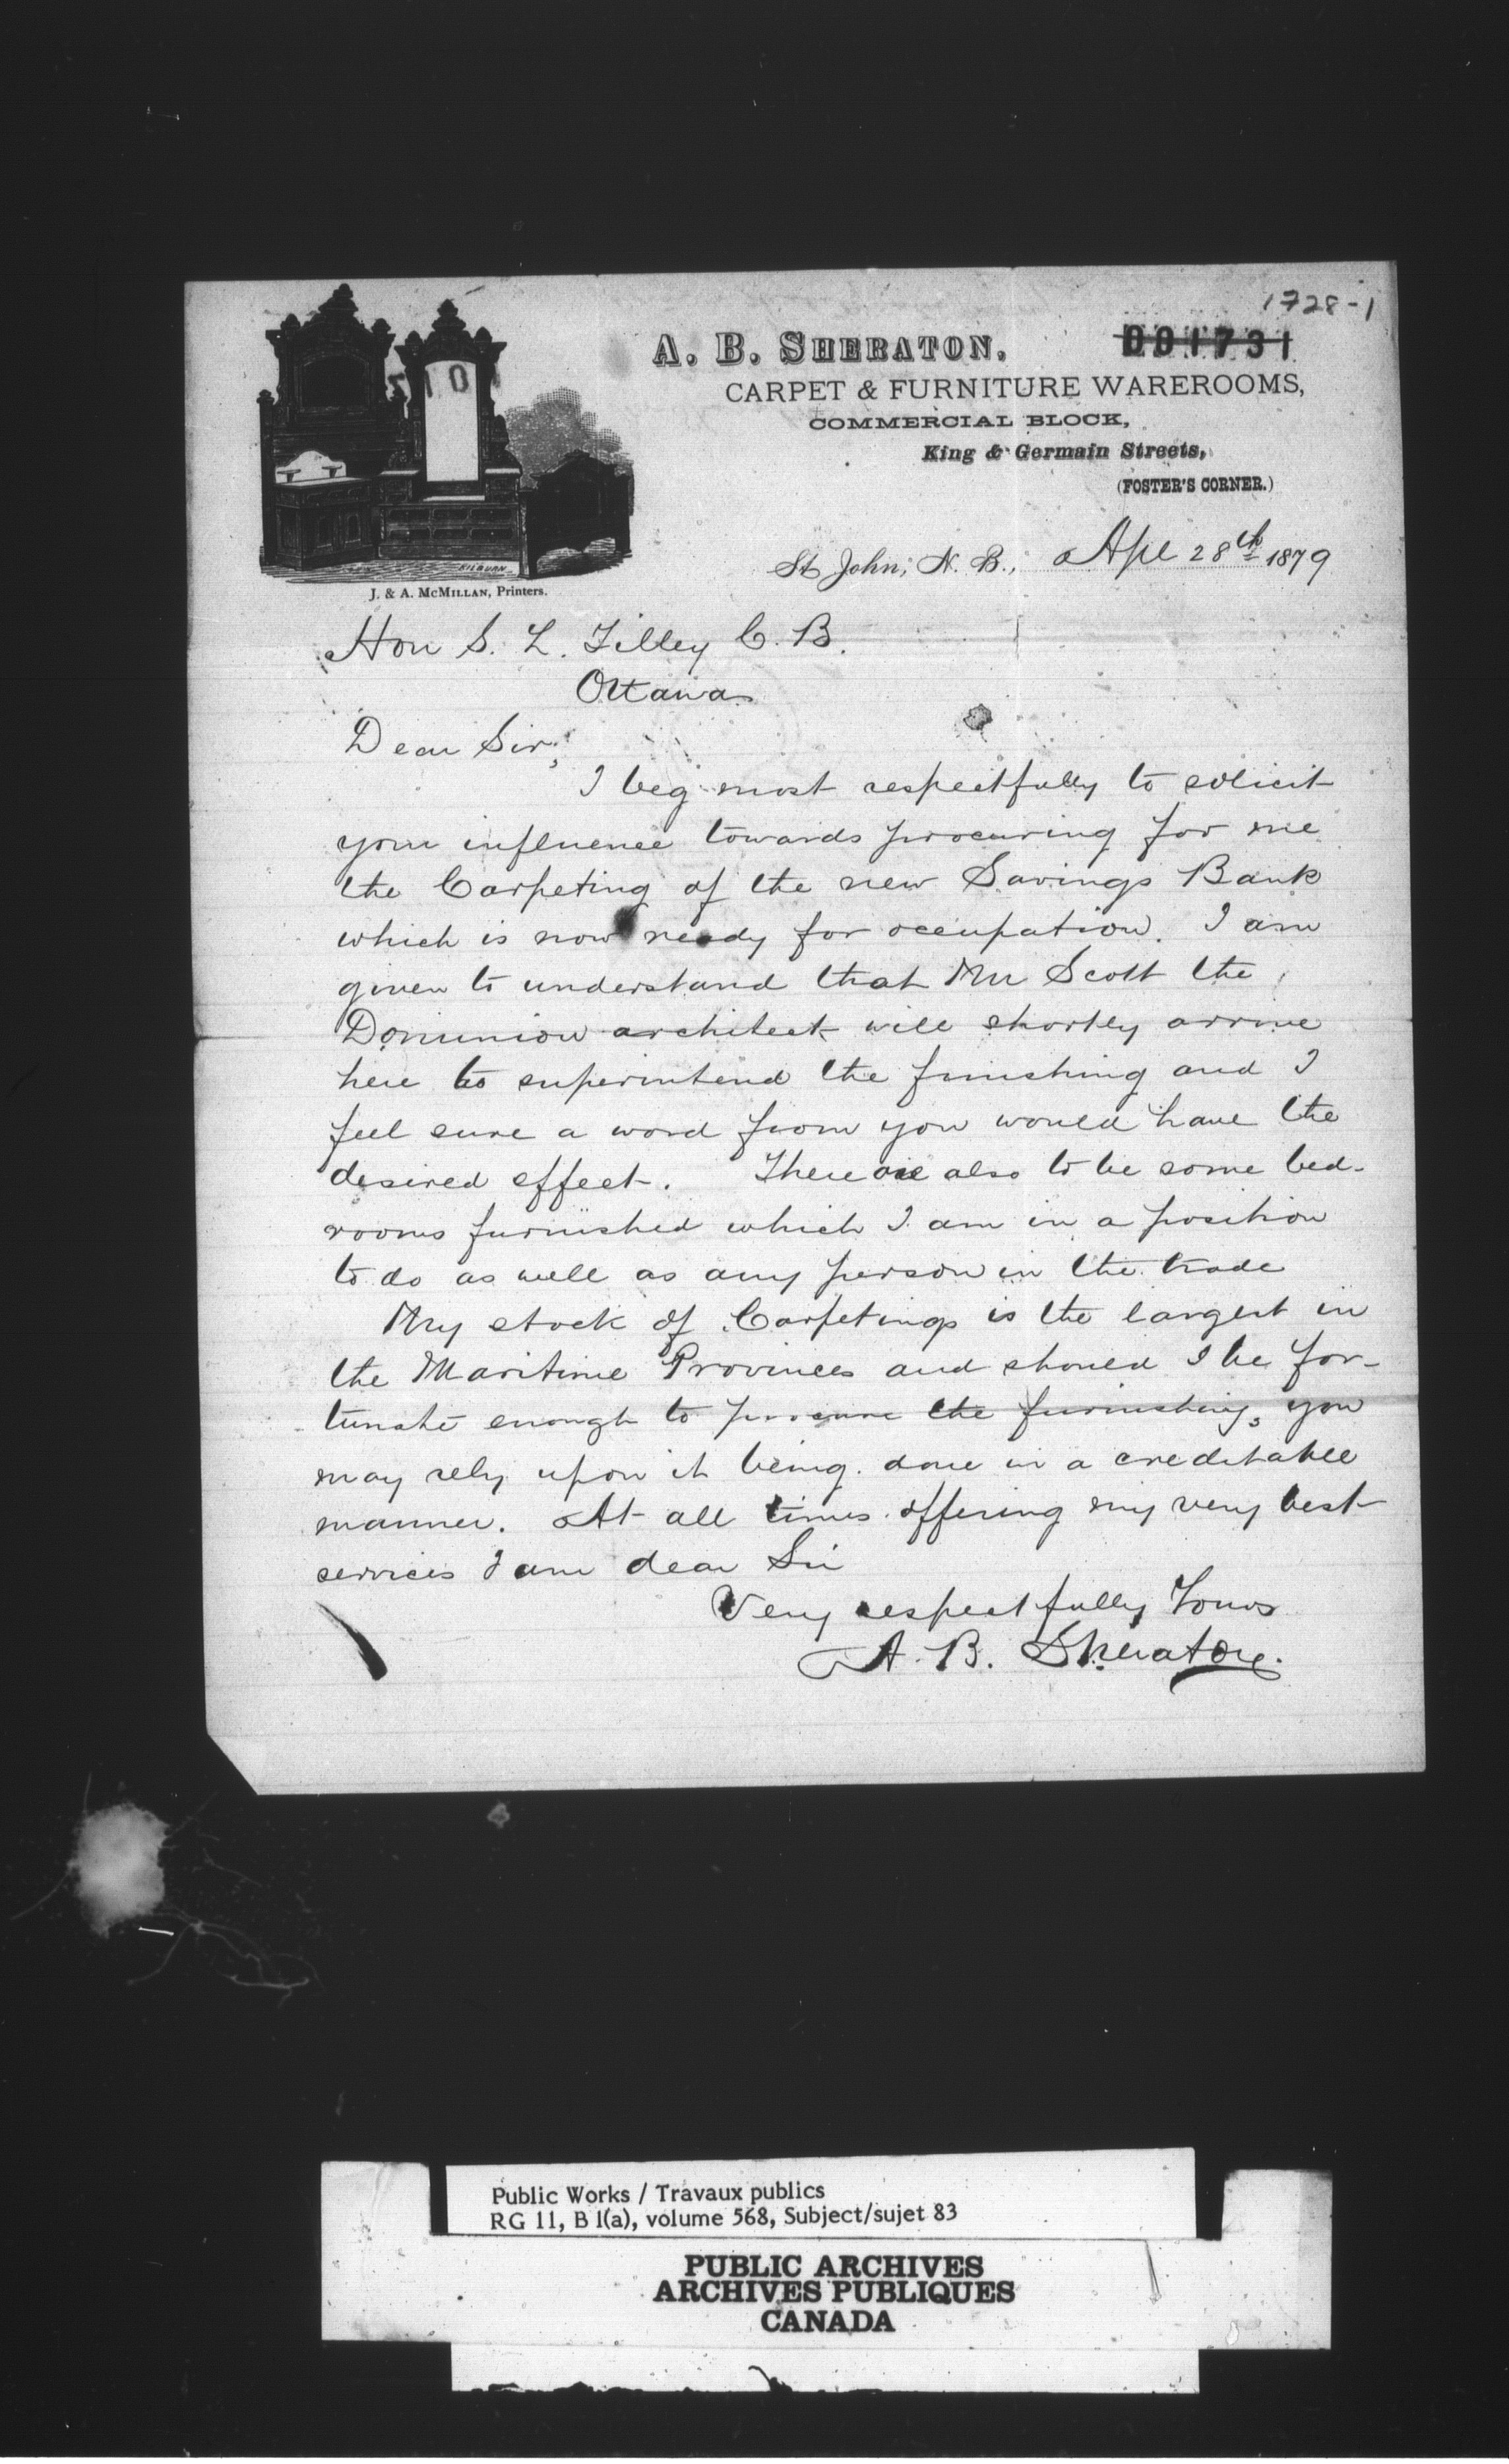 1728-1
001731
A. B. SHERATON.
CARPET & FURNITURE WAREROOMS,
COMMERCIAL BLOCK,
King & Germain Streets,
(FOSTER'S CORNER.)
KILBURN
J. & A. McMILLAN, Printers.
St John, N. B., Apl 28th 1879
Hon S. L. Tilley C. B.
Ottawa
Dear Sir,
I beg most respectfully to solicit
your influence towards procuring for me
the Carpeting of the new Savings Bank
which is now ready for occupation. I am
given to understand that Mr Scott the
Dominion architect will shortly arrive
here to superintend the finishing and I
feel sure a word from you would have the
desired effect. There are also to be some bed-
rooms furnished which I am in a position
to do as well as any person in the trade
My stock of Carpetings is the largest in
the Maritime Provinces and should I be for-
tunate enough to procure the furnishing, you
may rely upon it being done in a creditable
manner. At all times offering my very best
services I am dear Sir
Very respectfully Yours
A. B. Sheraton.
Public Works / Travaux publics
RG 11, B 1(a), volume 568, Subject/sujet 83
PUBLIC ARCHIVES
ARCHIVES PUBLIQUES
CANADA